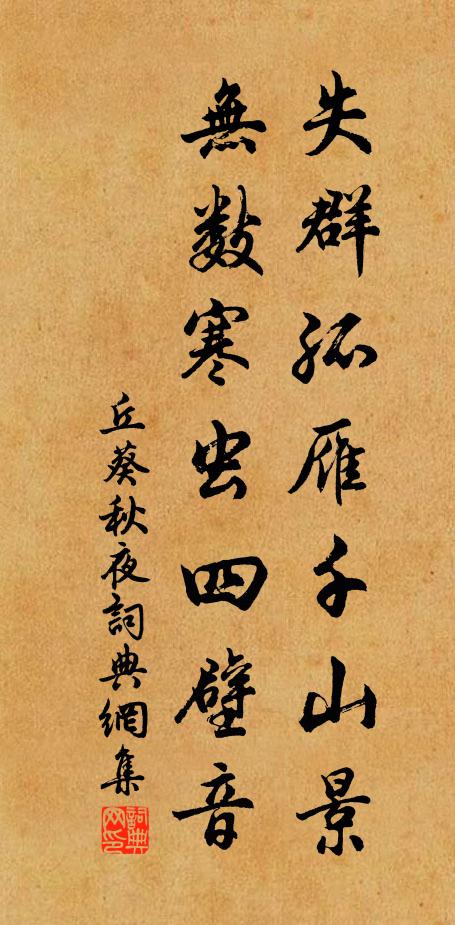 失群孤雁千山景
無數寒虫四壁音
丘葵秋夜詞典網集
詞典网印